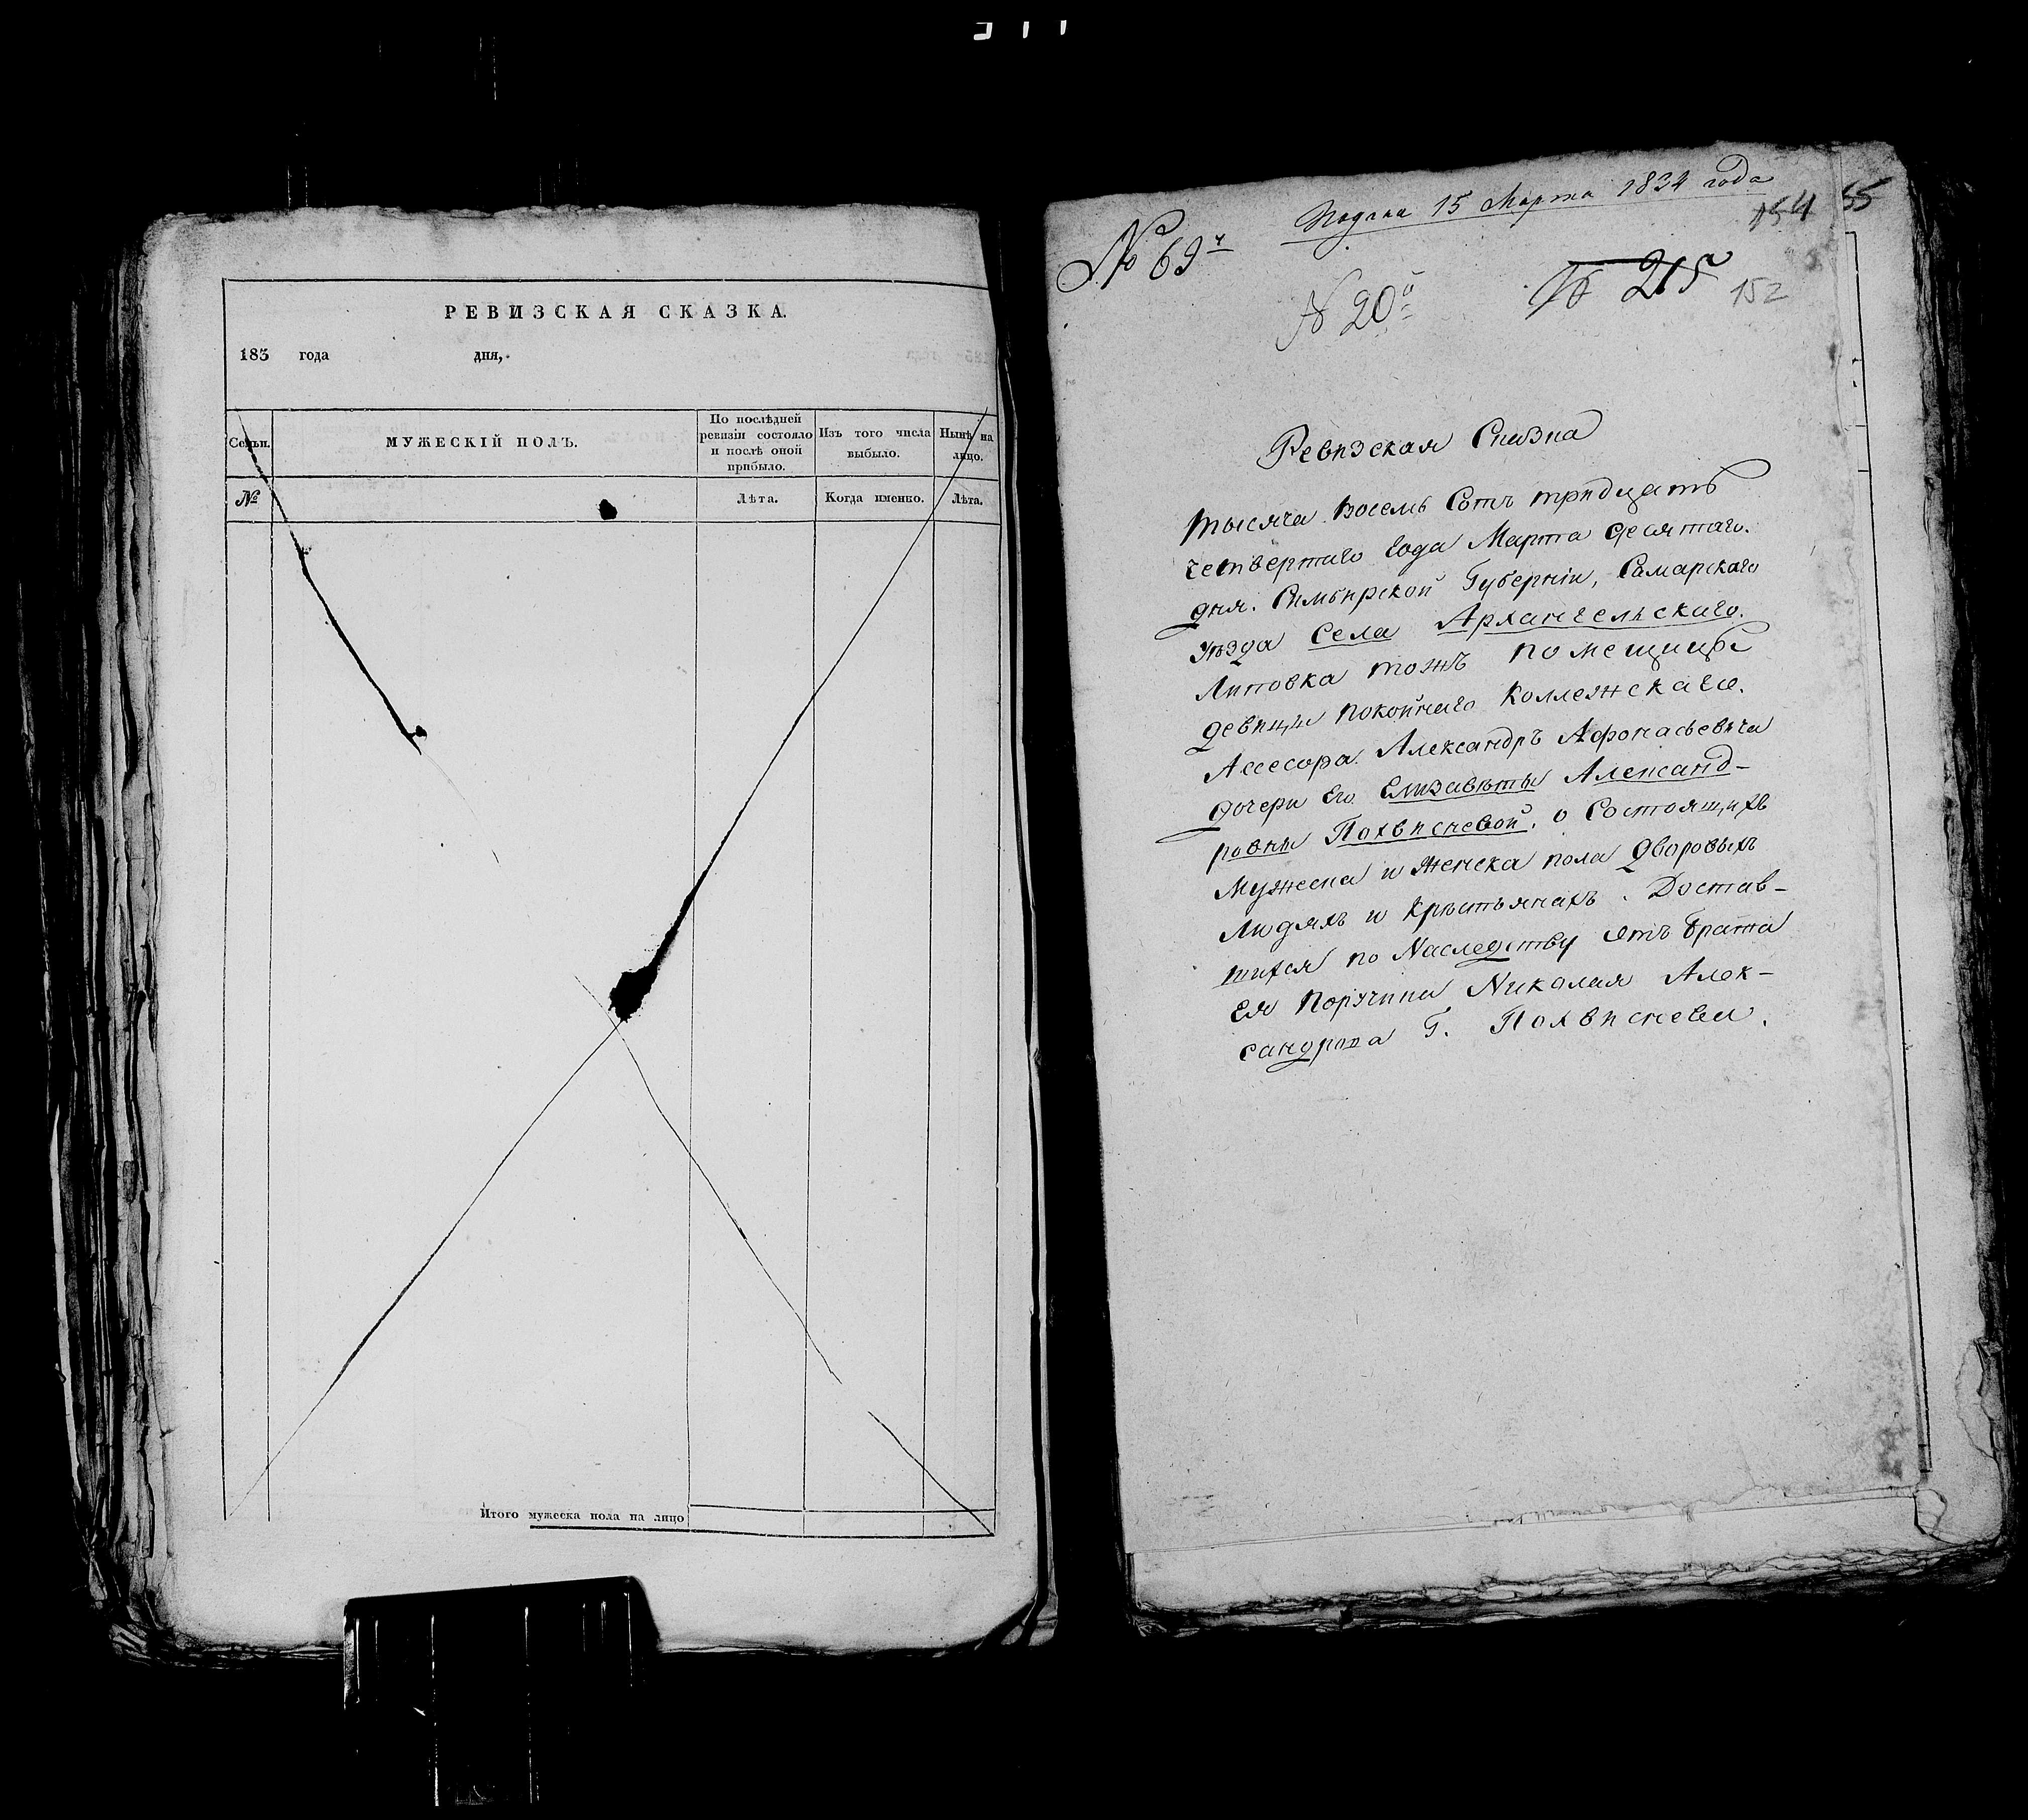 РЕВИЗСКАЯ СКАЗКА.
183 года дня,
Семьи. МУЖЕСКІЙ ПОЛЪ. По послѣдней ревизіи состояло и послѣ оной прибыло. Изъ того числа выбыло. Нынѣ на лицо.
№ Лѣта. Когда именно. Лѣта.
Итого мужеска пола на лицо
Подана 15 Марта 1834 года
154 55
№ 69й
№ 20й
№ 215
152
Ревизская Сказка
тысяча восемь Сотъ тридцать
четвертаго Года Марта десятаго.
дня. Симбирской Губерніи, Самарскаго
уѣзда Села Архангельскаго.
Липовка тожъ помещицы
девицы покойнаго Коллежскаго.
Ассесора. Александръ Афонасьевича
дочери Его Елизаветы Александ-
ровны Похвисневой. о Состоящихъ
Мужеска и женска пола дворовыхъ
людяхъ и крестьянахъ. Достав-
шихся по Наследству отъ брата
Ея Порутчика Николая Алек-
сандрова Г. Похвиснева.